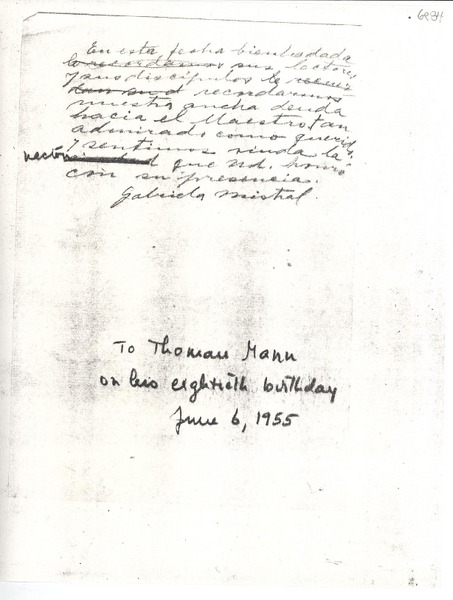 En esta fecha bienhadada
lo recordamos sus lectores
y sus discípulos le
recordaremos
nuestra ancha deuda
hacia el Maestro tan
admirado como querido,
y sentimos viuda la
que Ud. honró
con su presencia.
Gabriela Mistral.
To Thomas Mann
on his eightieth birthday
June 6, 1955